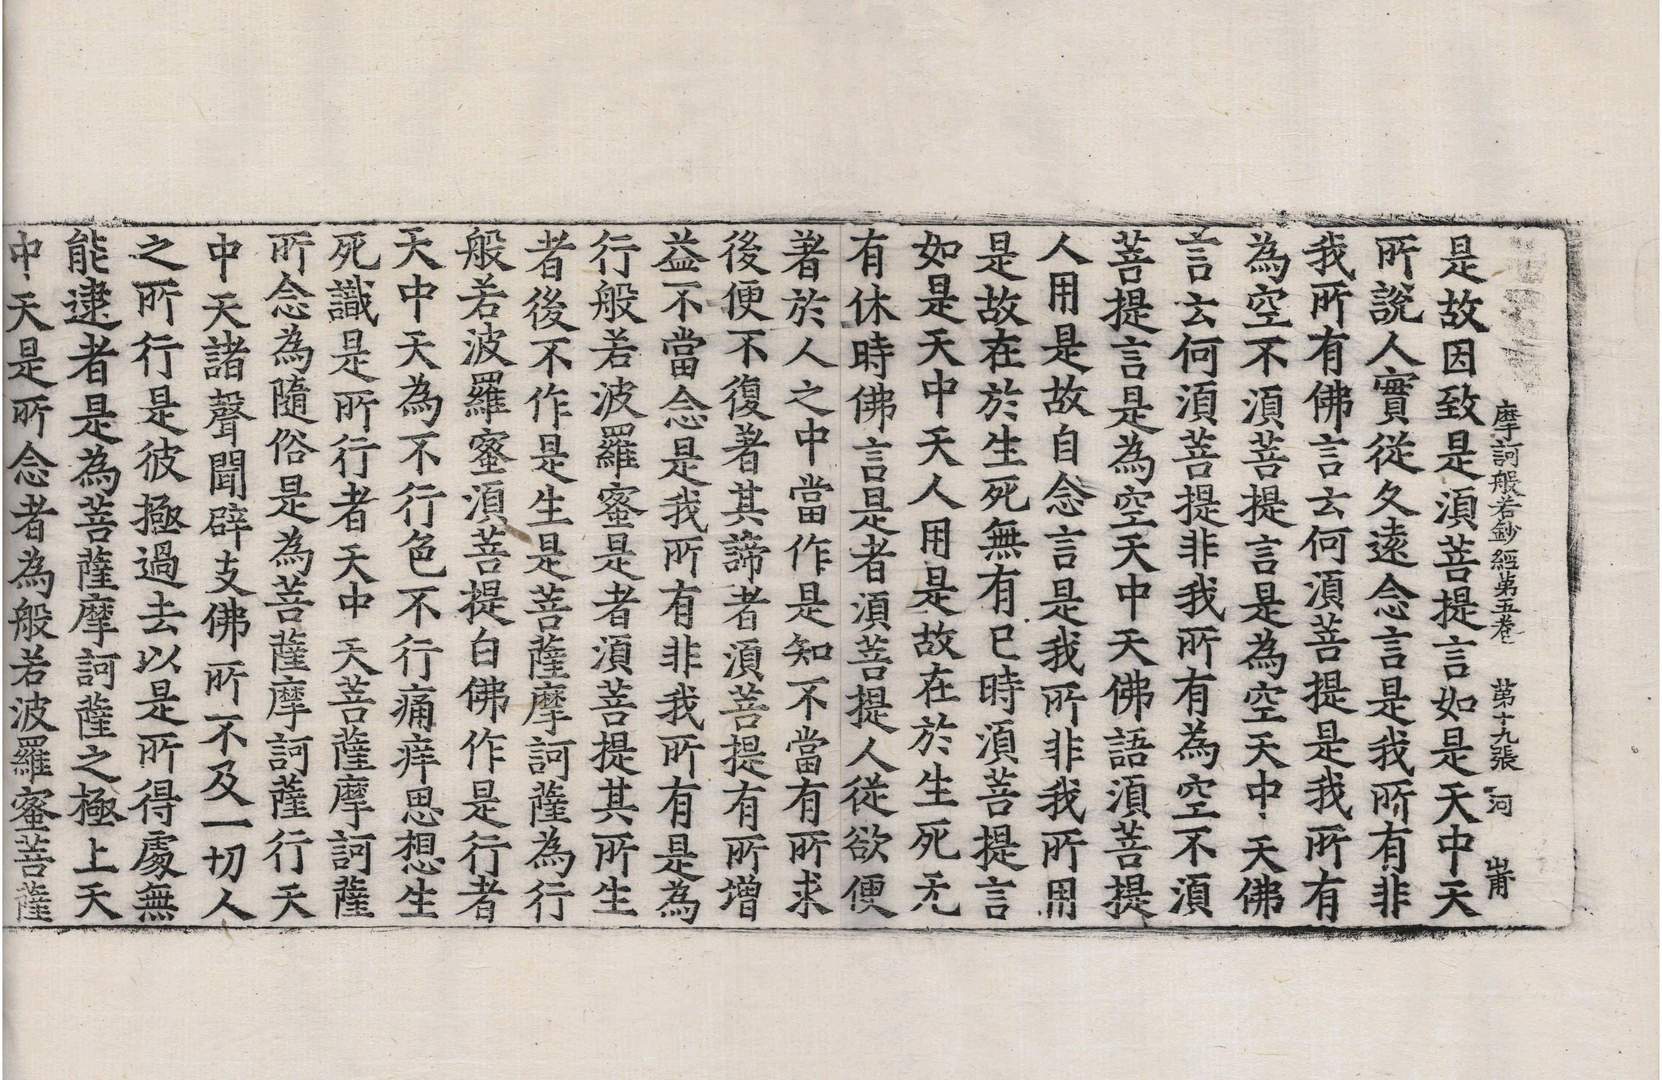 摩訶般若鈔經第五卷 第十九張 河
是故因致是須菩提言如是天中天
所說人實從久遠念言是我所有非
我所有佛言云何須菩提是我所有
為空不須菩提言是為空天中天佛
言云何須菩提非我所有為空不須
菩提言是為空天中天佛語須菩提
人用是故自念言是我所非我所用
是故在於生死無有已時須菩提言
如是天中天人用是故在於生死无
有休時佛言是者須菩提人從欲便
著於人之中當作是知不當有所求
後便不復著其諦者須菩提有所增
益不當念是我所有非我所有是為
行般若波羅蜜是者須菩提其所生
者後不作是生是菩薩摩訶薩為行
般若波羅蜜須菩提白佛作是行者
天中天為不行色不行痛痒思想生
死識是所行者天中天菩薩摩訶薩
所念為隨俗是為菩薩摩訶薩行天
中天諸聲聞辟支佛所不及一切人
之所行是彼極過去以是所得處無
能逮者是為菩薩摩訶薩之極上天
中天是所念者為般若波羅蜜菩薩